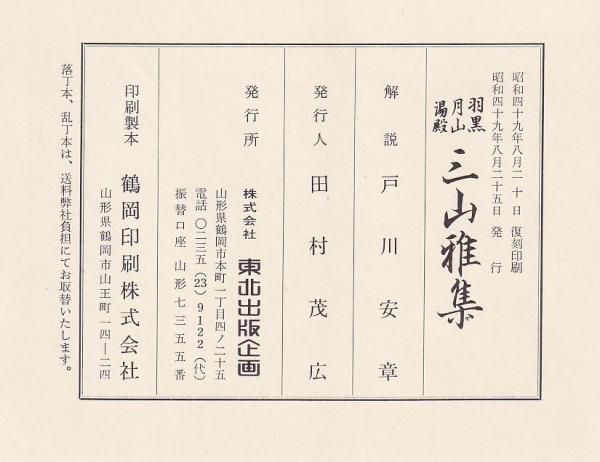 昭和四十九年八月二十日 復刻印刷
昭和四十九年八月二十五日 発行
羽黒
月山
湯殿
三山雅集
解説 戸川安章
発行人 田村茂広
発行所 株式会社 東北出版企画
山形県鶴岡市本町一丁目四ノ二十五
電話 〇二三五(23)9122(代)
振替口座 山形七三五五番
印刷製本 鶴岡印刷株式会社
山形県鶴岡市山王町一四―二四
落丁本、乱丁本は、送料弊社負担にてお取替いたします。